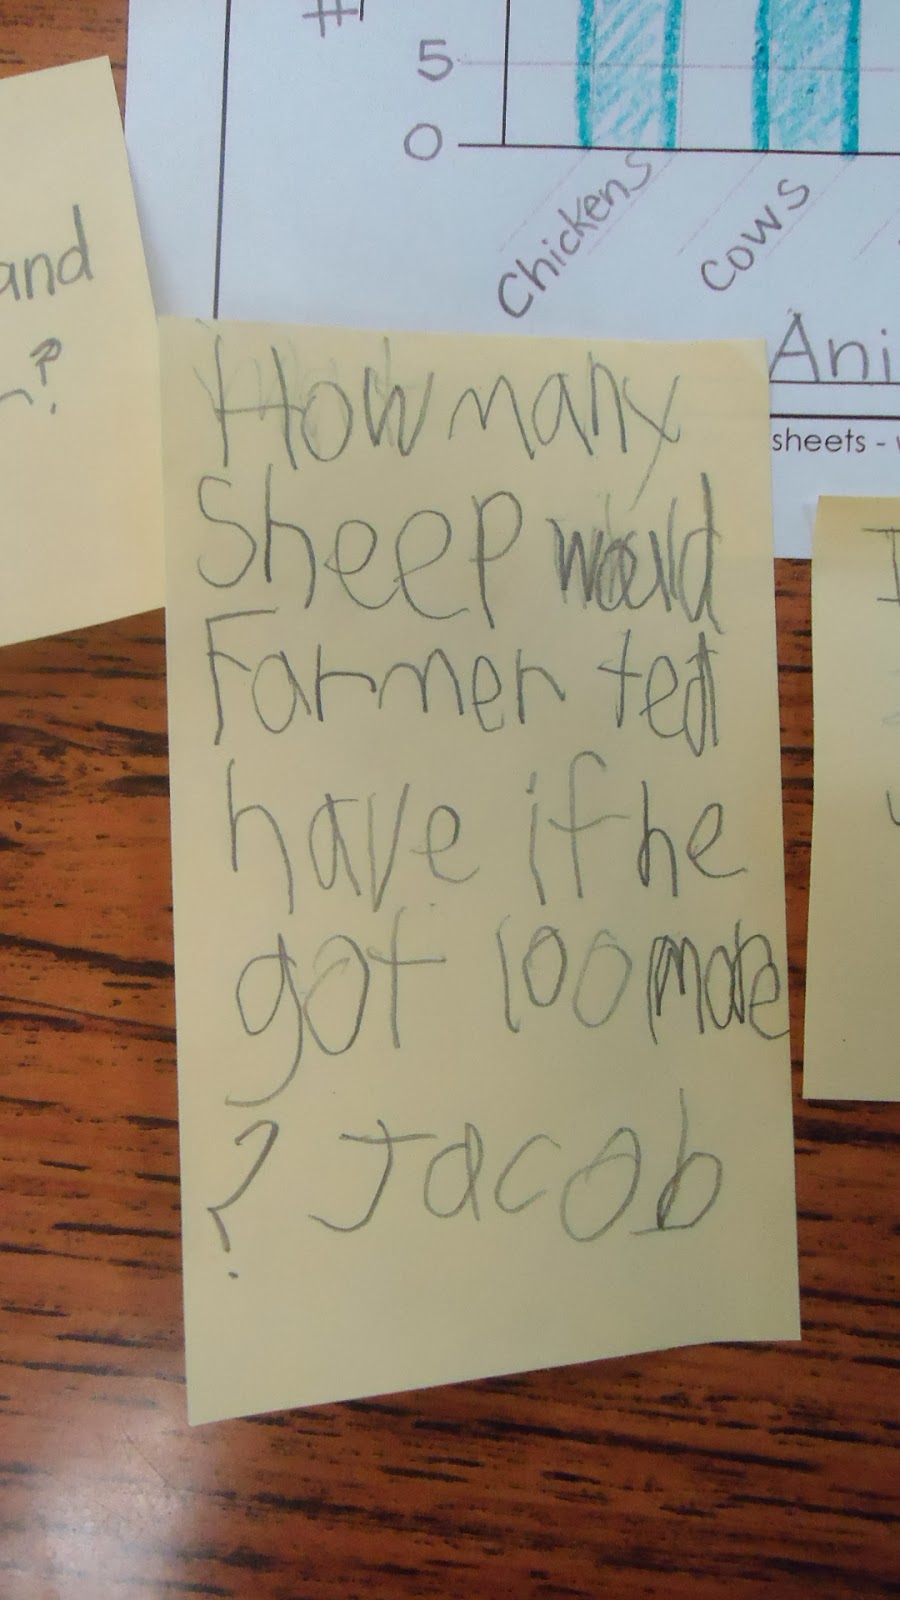 #
5
0
Chickens
Cows
Ani
sheets -
and
?
How many
Sheep would
Farmer ted
have if he
got 100 more
? Jacob